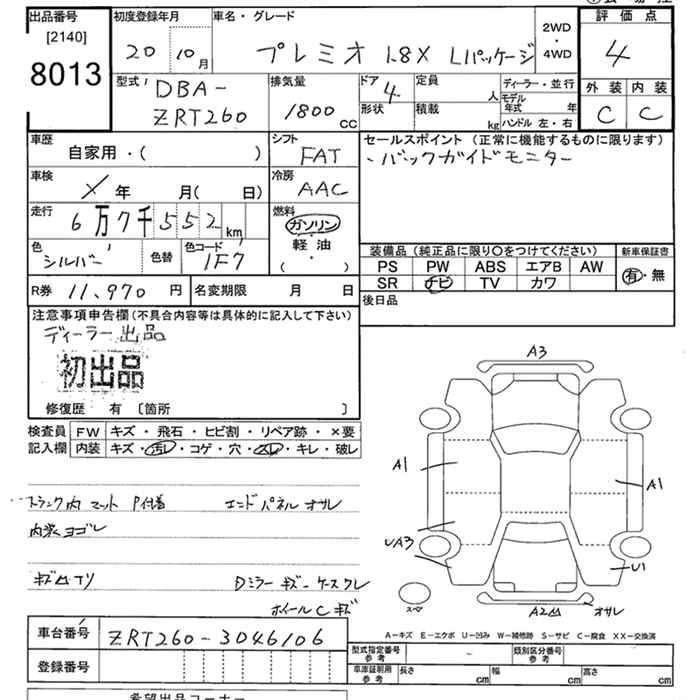 出品番号
[2140]
8013
初度登録年月
20 10月
車名・グレード
プレミオ 1.8X Lパッケージ
2WD
・
4WD
評価点
4
外装 内装
C C
型式
DBA-
ZRT260
排気量
1800 CC
ドア 4
形状
定員 人
積載 kg
ディーラー・並行
モデル年式 年
ハンドル 左・右
車歴
自家用・( )
シフト
FAT
セールスポイント (正常に機能するものに限ります)
・バックガイドモニター
車検
X年 月( 日)
冷房
AAC
走行
6万7千552km
燃料
ガソリン
・
軽油
・
( )
色
シルバー
色替
色コード
1F7
装備品(純正品に限り〇をつけてください)
PS PW ABS エアB AW
SR ナビ TV カワ
新車保証書
有・無
R券 11,970円
名変期限 月 日
後日品
注意事項申告欄(不具合内容等は具体的に記入して下さい)
ディーラー出品
初出品
修復歴 有 〔箇所 〕
検査員
記入欄
FW キズ・飛石・ヒビ割・リペア跡・×要
内装 キズ・汚れ・コゲ・穴・スレ・キレ・破レ
トランク内 マット P付着 エンドパネル オサレ
内装ヨゴレ
キズ凹アリ Dミラーキズーケースワレ
ホイールCキズ
A3
A1
A1
UA3
U1
スペア
A2凹
オサレ
A-キズ E-エクボ U-凹み W-補修跡 S-サビ C-腐食 XX-交換済
車台番号 ZRT260-3046106
登録番号
型式指定番号
参考
-
類別区分番号
参考
車庫証明用
参考
長さ cm
幅 cm
高さ cm
希望出品コーナー